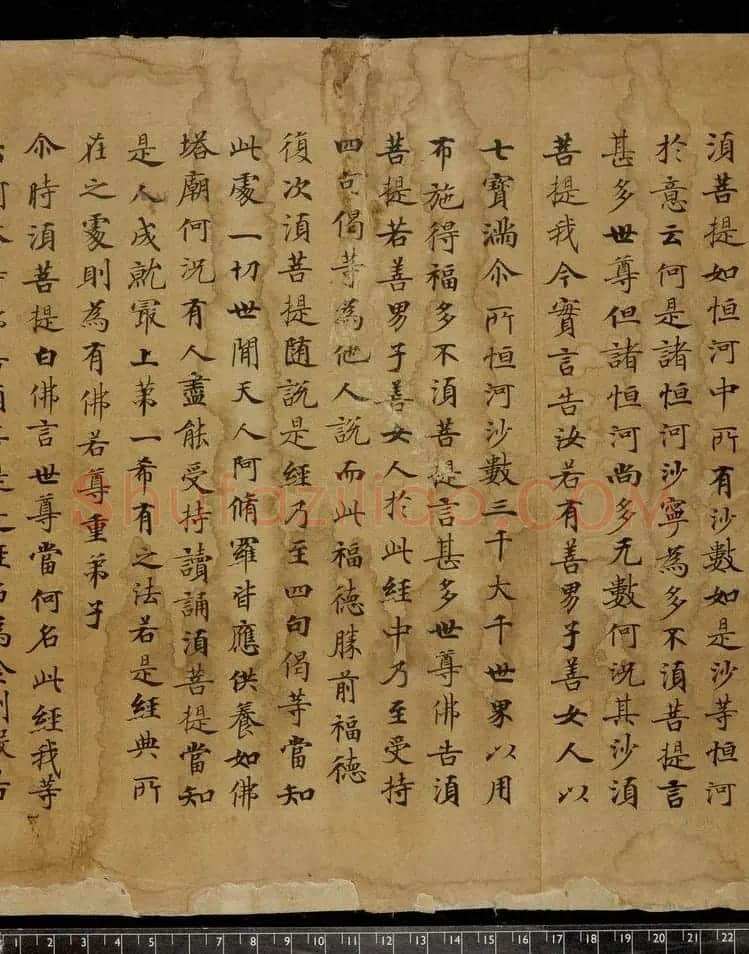 湏菩提如恒河中所有沙數如是沙等恒河
扵意云何是諸恒河沙寧為多不湏菩提言
甚多世尊但諸恒河尚多无數何況其沙湏
菩提我今實言告汝若有善男子善女人以
七寶滿尒所恒河沙數三千大千世界以用
布施得福多不湏菩提言甚多世尊佛告湏
菩提若善男子善女人於此經中乃至受持
四句偈等為他人說而此福德勝前福德
復次湏菩提随說是經乃至四句偈等當知
此處一切世間天人阿脩羅皆應供養如佛
塔廟何況有人盡能受持讀誦湏菩提當知
是人成就冣上苐一希有之法若是經典所
在之處則為有佛若尊重弟子
尒時湏菩提白佛言世尊當何名此經我等
shufaziliao.com
1 2 3 4 5 6 7 8 9 10 11 12 13 14 15 16 17 18 19 20 21 22